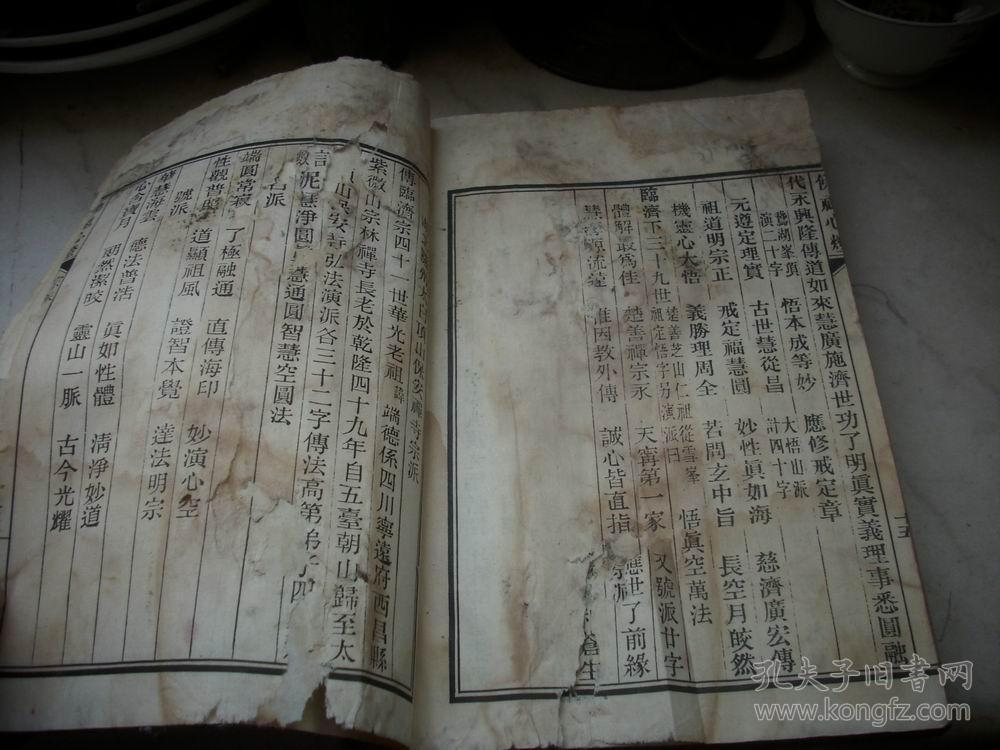 代永興隆傳道如來慧廣施濟世功了明眞實義理事悉圓融
鵞湖峯頂演二十字 悟本成等妙 應修戒定章 大悟山派計四十字
元遵定理實 古世慧從昌 妙性眞如海 慈濟廣宏傳
祖道明宗正 戒定福慧圓 若問玄中旨 長空月皎然
機靈心大悟 義勝理周全 悟眞空萬法
臨濟下三十九世 楚善芝山仁祖從雪峯祖定悟字另演派曰 天甯第一家 又號派廿字
體解最爲佳 楚善禪宗永 應世了前緣
源流遠 惟因敎外傳 誠心皆直指 蒼生
十五
傳臨濟宗四十一世華光老祖諱端德係四川寧遠府西昌縣
紫微山宗林禪寺長老於乾隆四十九年自五臺朝山歸至太
山 安寺弘法演派各三十二字傳法高第弟子四
慧淨圓 慧通圓智慧空圓法
名派
端圓常寂 了極融通 直傳海印 妙演心空
性觀普照 道顯祖風 證智本覺 達法明宗
號派
慧海雲 德法普浩 眞如性體 淸淨妙道
寶月 祖然潔皎 靈山一脈 古今光耀
孔夫子旧书网
www.kongfz.com